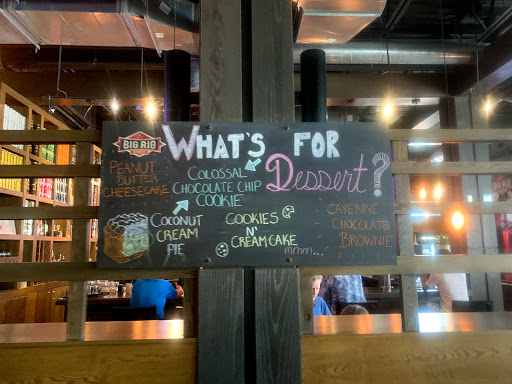 BIG RIG
WHAT'S FOR
Dessert?
PEANUT
BUTTER
CHEESECAKE
COLOSSAL
CHOCOLATE CHIP
COOKIE
COCONUT
CREAM
PIE
COOKIES
N'
CREAM CAKE
CAYENNE
CHOCOLATE
BROWNIE
mmm...